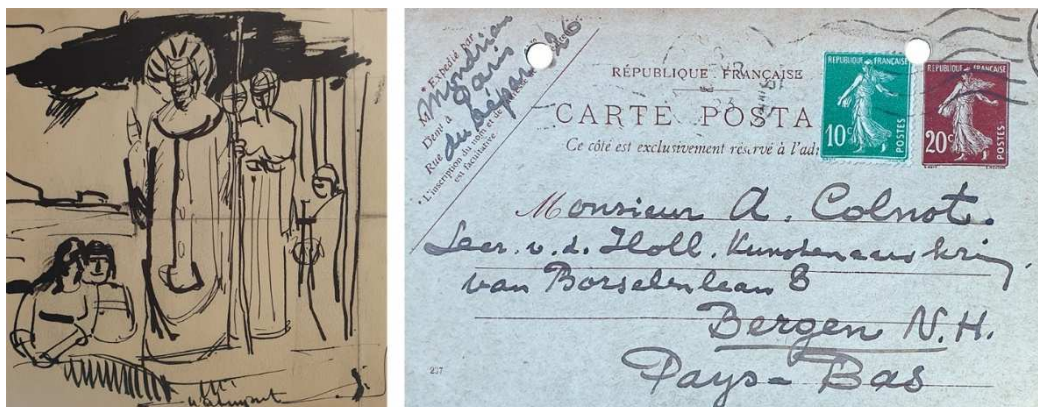 Expédié par
M Mondrian
Demt à Paris
Rue du Départ 26
* L'inscription du nom et de
est facultative
RÉPUBLIQUE FRANÇAISE
CARTE POSTA
Ce côté est exclusivement réservé à l'adr
RÉPUBLIQUE FRANÇAISE
10c
POSTES
RÉPUBLIQUE FRANÇAISE
20c
POSTES
Monsieur A. Colnot.
Secr. v. d. Holl. Kunstenaarskring.
van Borselenlaan 8
Bergen N.H.
Pays-Bas